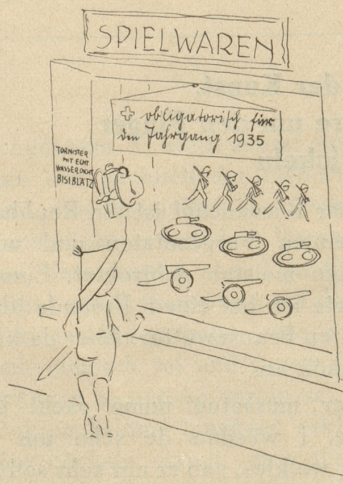 SPIELWAREN
obligatorisch für
den Jahrgang 1935
TORNISTER
MIT ECHT
WASSERDICHT
BISIBLÄTZ